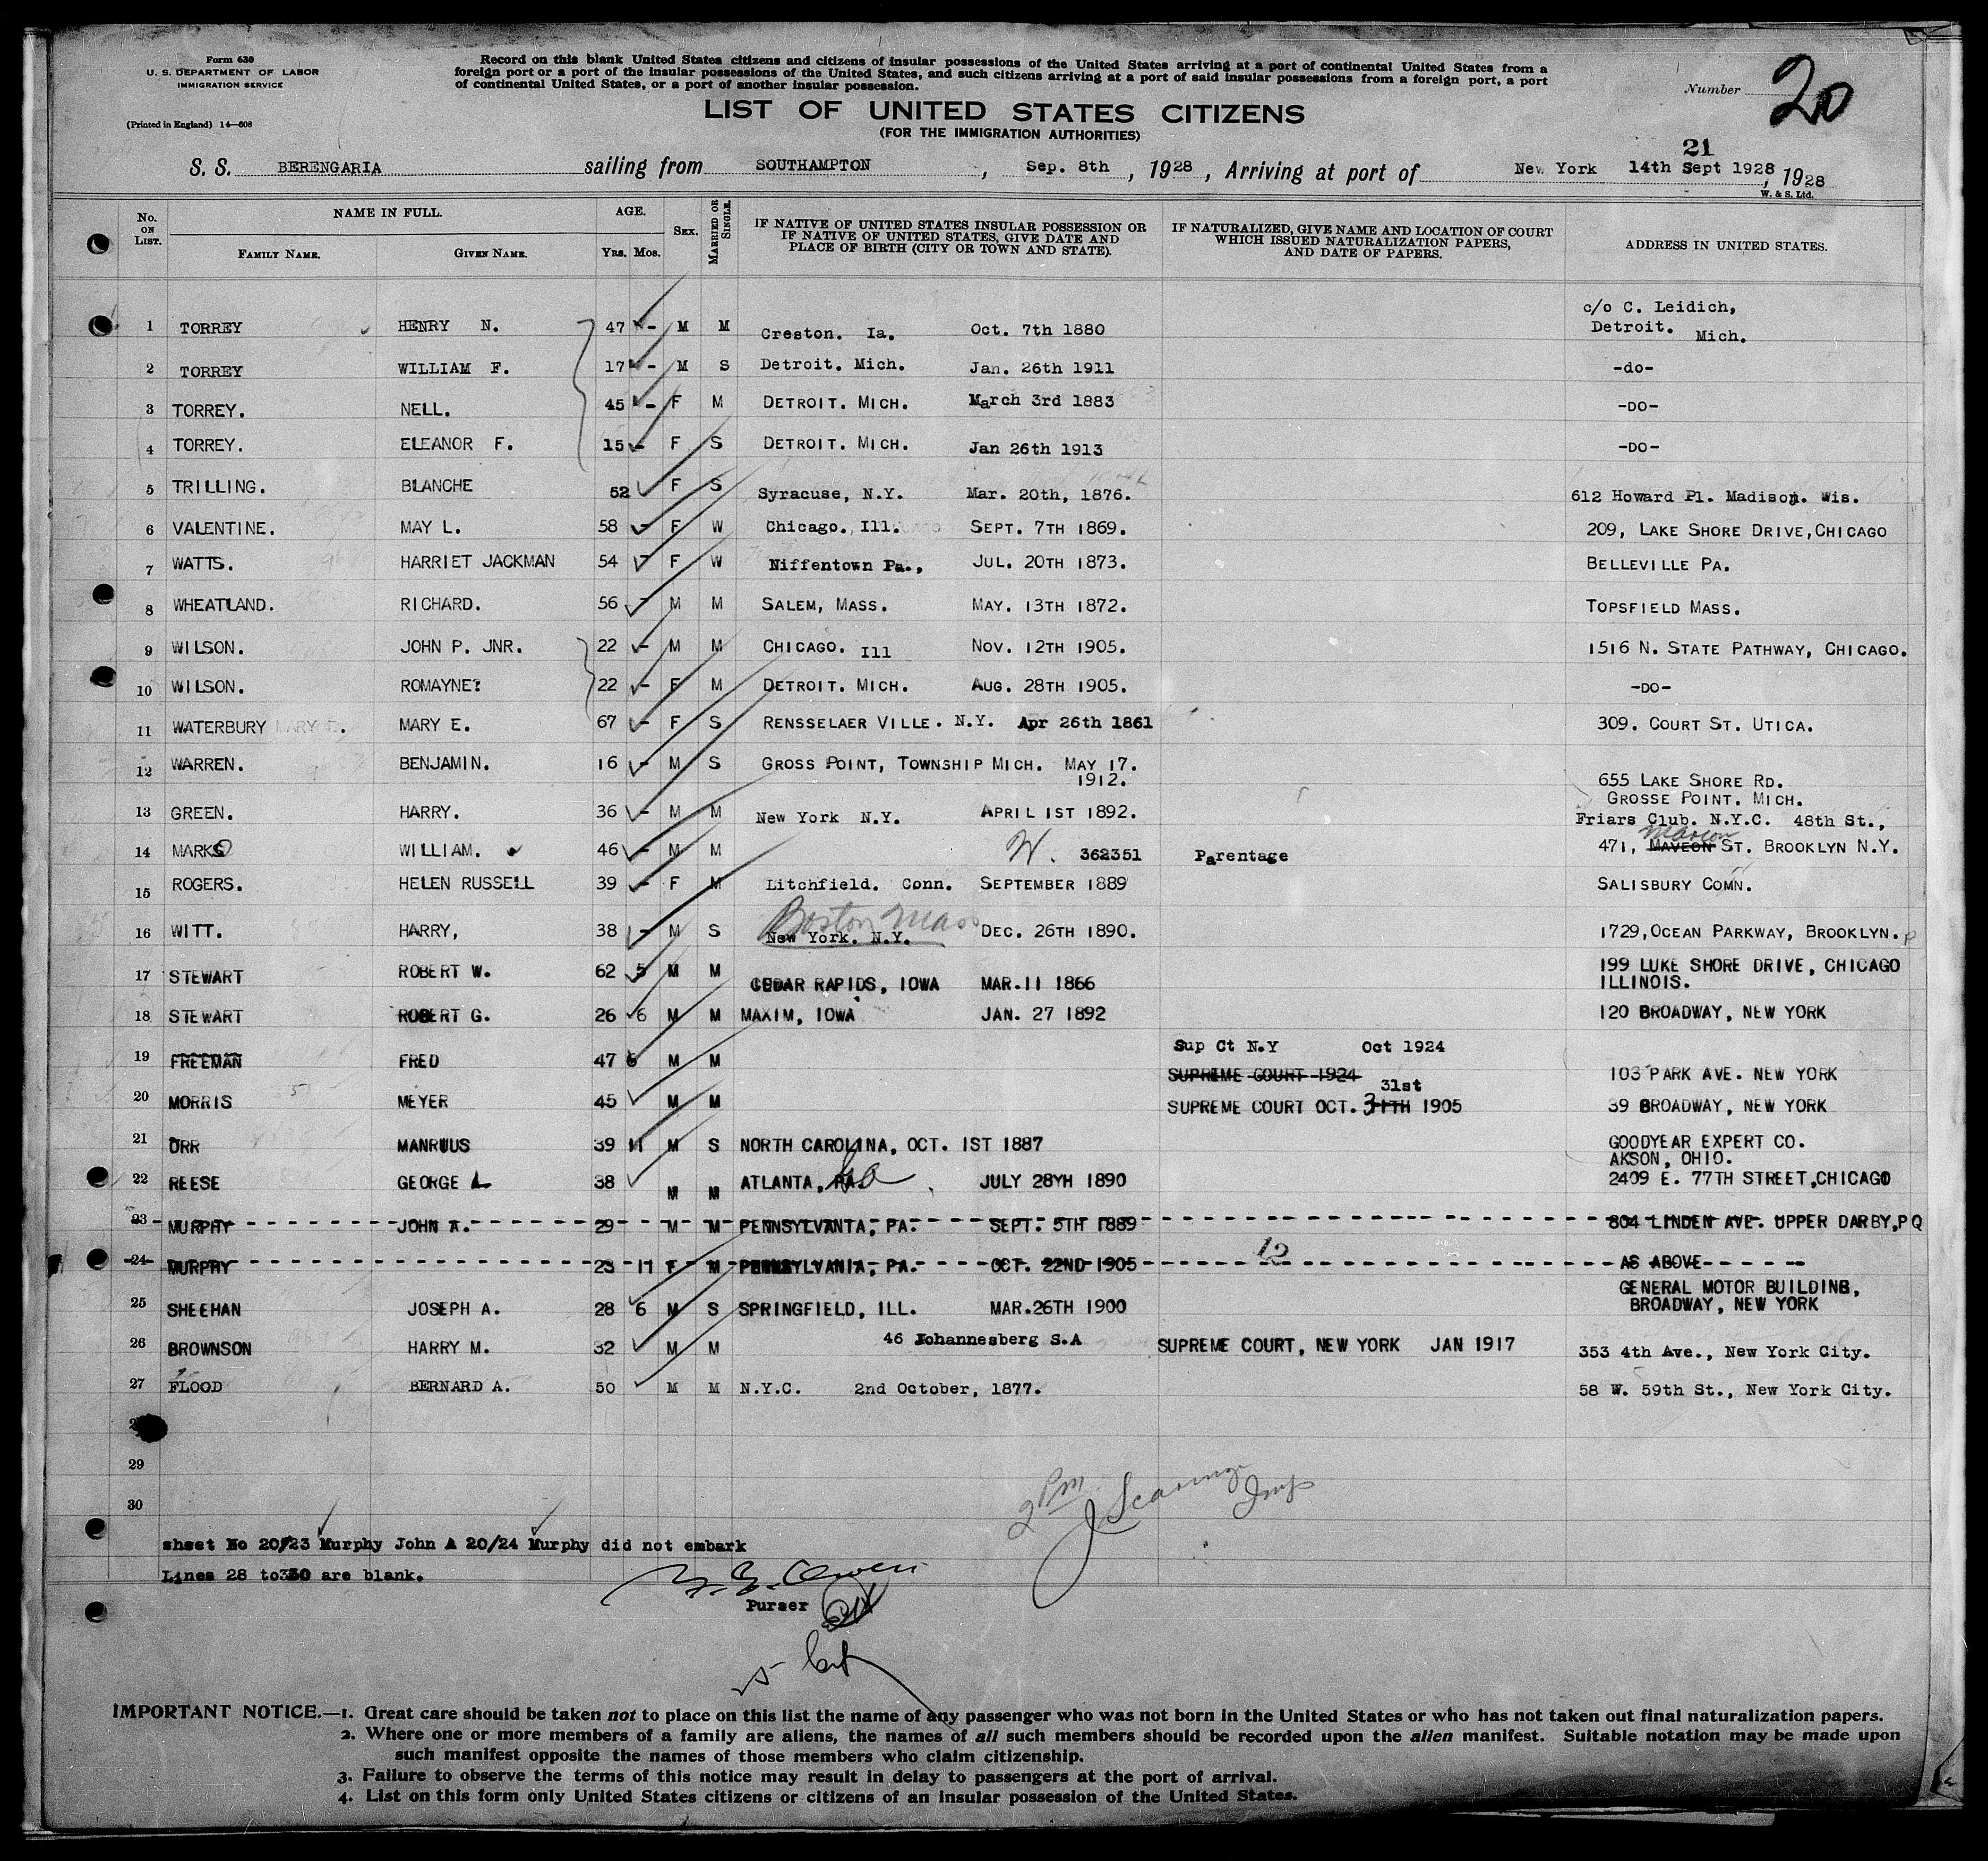 Form 630
U. S. DEPARTMENT OF LABOR
IMMIGRATION SERVICE
(Printed in England) 14—608
Record on this blank United States citizens and citizens of insular possessions of the United States arriving at a port of continental United States from a
foreign port or a port of the insular possessions of the United States, and such citizens arriving at a port of said insular possessions from a foreign port, a port
of continental United States, or a port of another insular possession.
LIST OF UNITED STATES CITIZENS
(FOR THE IMMIGRATION AUTHORITIES)
Number 20
21
S. S. BERENGARIA sailing from SOUTHAMPTON, Sep. 8th, 1928, Arriving at port of New York 14th Sept 1928, 1928
W. & S. Ltd.
No. ON LIST. NAME IN FULL. FAMILY NAME. GIVEN NAME. AGE. Yrs. Mos. SEX. MARRIED OR SINGLE. IF NATIVE OF UNITED STATES INSULAR POSSESSION OR IF NATIVE OF UNITED STATES, GIVE DATE AND PLACE OF BIRTH (CITY OR TOWN AND STATE). IF NATURALIZED, GIVE NAME AND LOCATION OF COURT WHICH ISSUED NATURALIZATION PAPERS, AND DATE OF PAPERS. ADDRESS IN UNITED STATES.
1 TORREY HENRY N. 47 - M M Creston. Ia. Oct. 7th 1880 c/o C. Leidich, Detroit. Mich.
2 TORREY WILLIAM F. 17 - M S Detroit. Mich. Jan. 26th 1911 -do-
3 TORREY. NELL. 45 - F M DETROIT. MICH. March 3rd 1883 -DO-
4 TORREY. ELEANOR F. 15 - F S DETROIT. MICH. Jan 26th 1913 -DO-
5 TRILLING. BLANCHE 52 F S Syracuse, N.Y. Mar. 20th, 1876. 612 Howard Pl. Madison. Wis.
6 VALENTINE. MAY L. 58 - F W Chicago. Ill. SEPT. 7TH 1869. 209, LAKE SHORE DRIVE, CHICAGO
7 WATTS. HARRIET JACKMAN 54 - F W Niffentown Pa., JUL. 20TH 1873. BELLEVILLE PA.
8 WHEATLAND. RICHARD. 56 - M M SALEM, MASS. MAY. 13TH 1872. TOPSFIELD MASS.
9 WILSON. JOHN P. JNR. 22 - M M CHICAGO. Ill NOV. 12TH 1905. 1516 N. STATE PATHWAY, CHICAGO.
10 WILSON. ROMAYNE? 22 - F M DETROIT. MICH. AUG. 28TH 1905. -DO-
11 WATERBURY MARY E. 67 - F S RENSSELAER VILLE. N.Y. Apr 26th 1861 309. COURT ST. UTICA.
12 WARREN. BENJAMIN. 16 - M S GROSS POINT, TOWNSHIP MICH. MAY 17. 1912. 655 LAKE SHORE RD. GROSSE POINT. MICH.
13 GREEN. HARRY. 36 - M M New York N.Y. APRIL 1ST 1892. Friars Club. N.Y.C. 48th St.,
14 MARKS WILLIAM. 46 - M M W. 362351 Parentage 471, MAVEON Marion ST. BROOKLYN N.Y.
15 ROGERS. HELEN RUSSELL 39 - F M Litchfield. Conn. SEPTEMBER 1889 SALISBURY CONN.
16 WITT. HARRY, 38 - M S New York. N.Y. Boston Mass DEC. 26TH 1890. 1729, OCEAN PARKWAY, BROOKLYN.
17 STEWART ROBERT W. 62 5 M M CEDAR RAPIDS, IOWA MAR.11 1866 199 LUKE SHORE DRIVE, CHICAGO ILLINOIS.
18 STEWART ROBERT G. 26 6 M M MAXIM, IOWA JAN. 27 1892 120 BROADWAY, NEW YORK
19 FREEMAN FRED 47 6 M M Sup Ct N.Y Oct 1924 SUPREME COURT 1924 103 PARK AVE. NEW YORK
20 MORRIS MEYER 45 M M SUPREME COURT OCT. 31st 1905 39 BROADWAY, NEW YORK
21 ORR MANRUUS 39 11 M S NORTH CAROLINA, OCT. 1ST 1887 GOODYEAR EXPERT CO. AKSON, OHIO.
22 REESE GEORGE L 38 M M ATLANTA, PA. Ga JULY 28YH 1890 2409 E. 77TH STREET, CHICAGO
23 MURPHY JOHN A. 29 M M PENNSYLVANTA, PA. SEPT. 5TH 1889 804 LINDEN AVE. UPPER DARBY, PQ
24 MURPHY 23 11 F M PENNSYLVANIA, PA. OCT. 22ND 1905 12 AS ABOVE
25 SHEEHAN JOSEPH A. 28 6 M S SPRINGFIELD, ILL. MAR.26TH 1900 GENERAL MOTOR BUILDING, BROADWAY, NEW YORK
26 BROWNSON HARRY M. 32 M M 46 Johannesberg S.A SUPREME COURT, NEW YORK JAN 1917 353 4th Ave., New York City.
27 FLOOD BERNARD A. 50 M M N.Y.C. 2nd October, 1877. 58 W. 59th St., New York City.
29
30
2 Pm
sheet No 20/23 Murphy John A 20/24 Murphy did not embark
Lines 28 to 30 are blank.
Purser
IMPORTANT NOTICE.—1. Great care should be taken not to place on this list the name of any passenger who was not born in the United States or who has not taken out final naturalization papers.
2. Where one or more members of a family are aliens, the names of all such members should be recorded upon the alien manifest. Suitable notation may be made upon
such manifest opposite the names of those members who claim citizenship.
3. Failure to observe the terms of this notice may result in delay to passengers at the port of arrival.
4. List on this form only United States citizens or citizens of an insular possession of the United States.